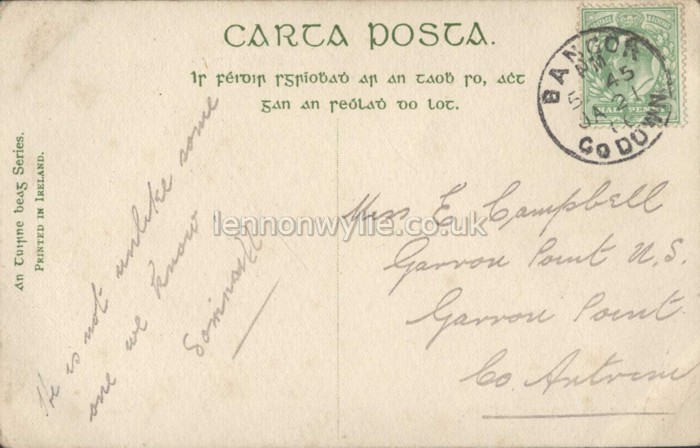 CARTA POSTA.
Ir féidir rgríobad ar an taob ro, act
gan an reólad do lot.
An Tuirne beag Series.
PRINTED IN IRELAND.
He is not unlike some
one we know
BANGOR
AM
5 45
JA 21
Co DOWN
HALFPENNY
Miss E. Campbell
Garron Point N.S.
Garron Point
Co. Antrim
lennonwylie.co.uk